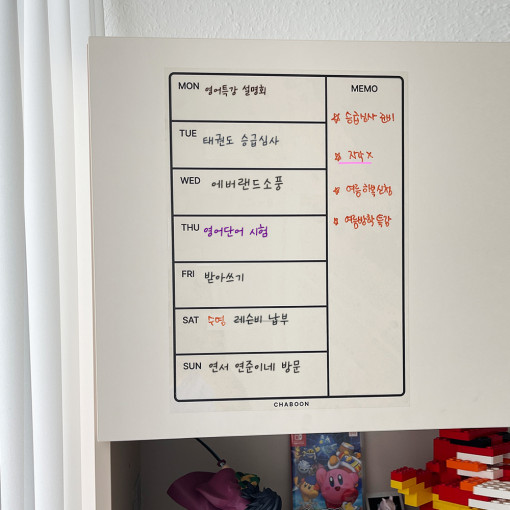 MON 영어특강 설명회
TUE 태권도 승급심사
WED 에버랜드소풍
THU 영어단어 시험
FRI 받아쓰기
SAT 수영 레슨비 납부
SUN 연서 연준이네 방문
MEMO
승급심사 준비
지각 X
여름학복신청
여름방학특강
CHABOON